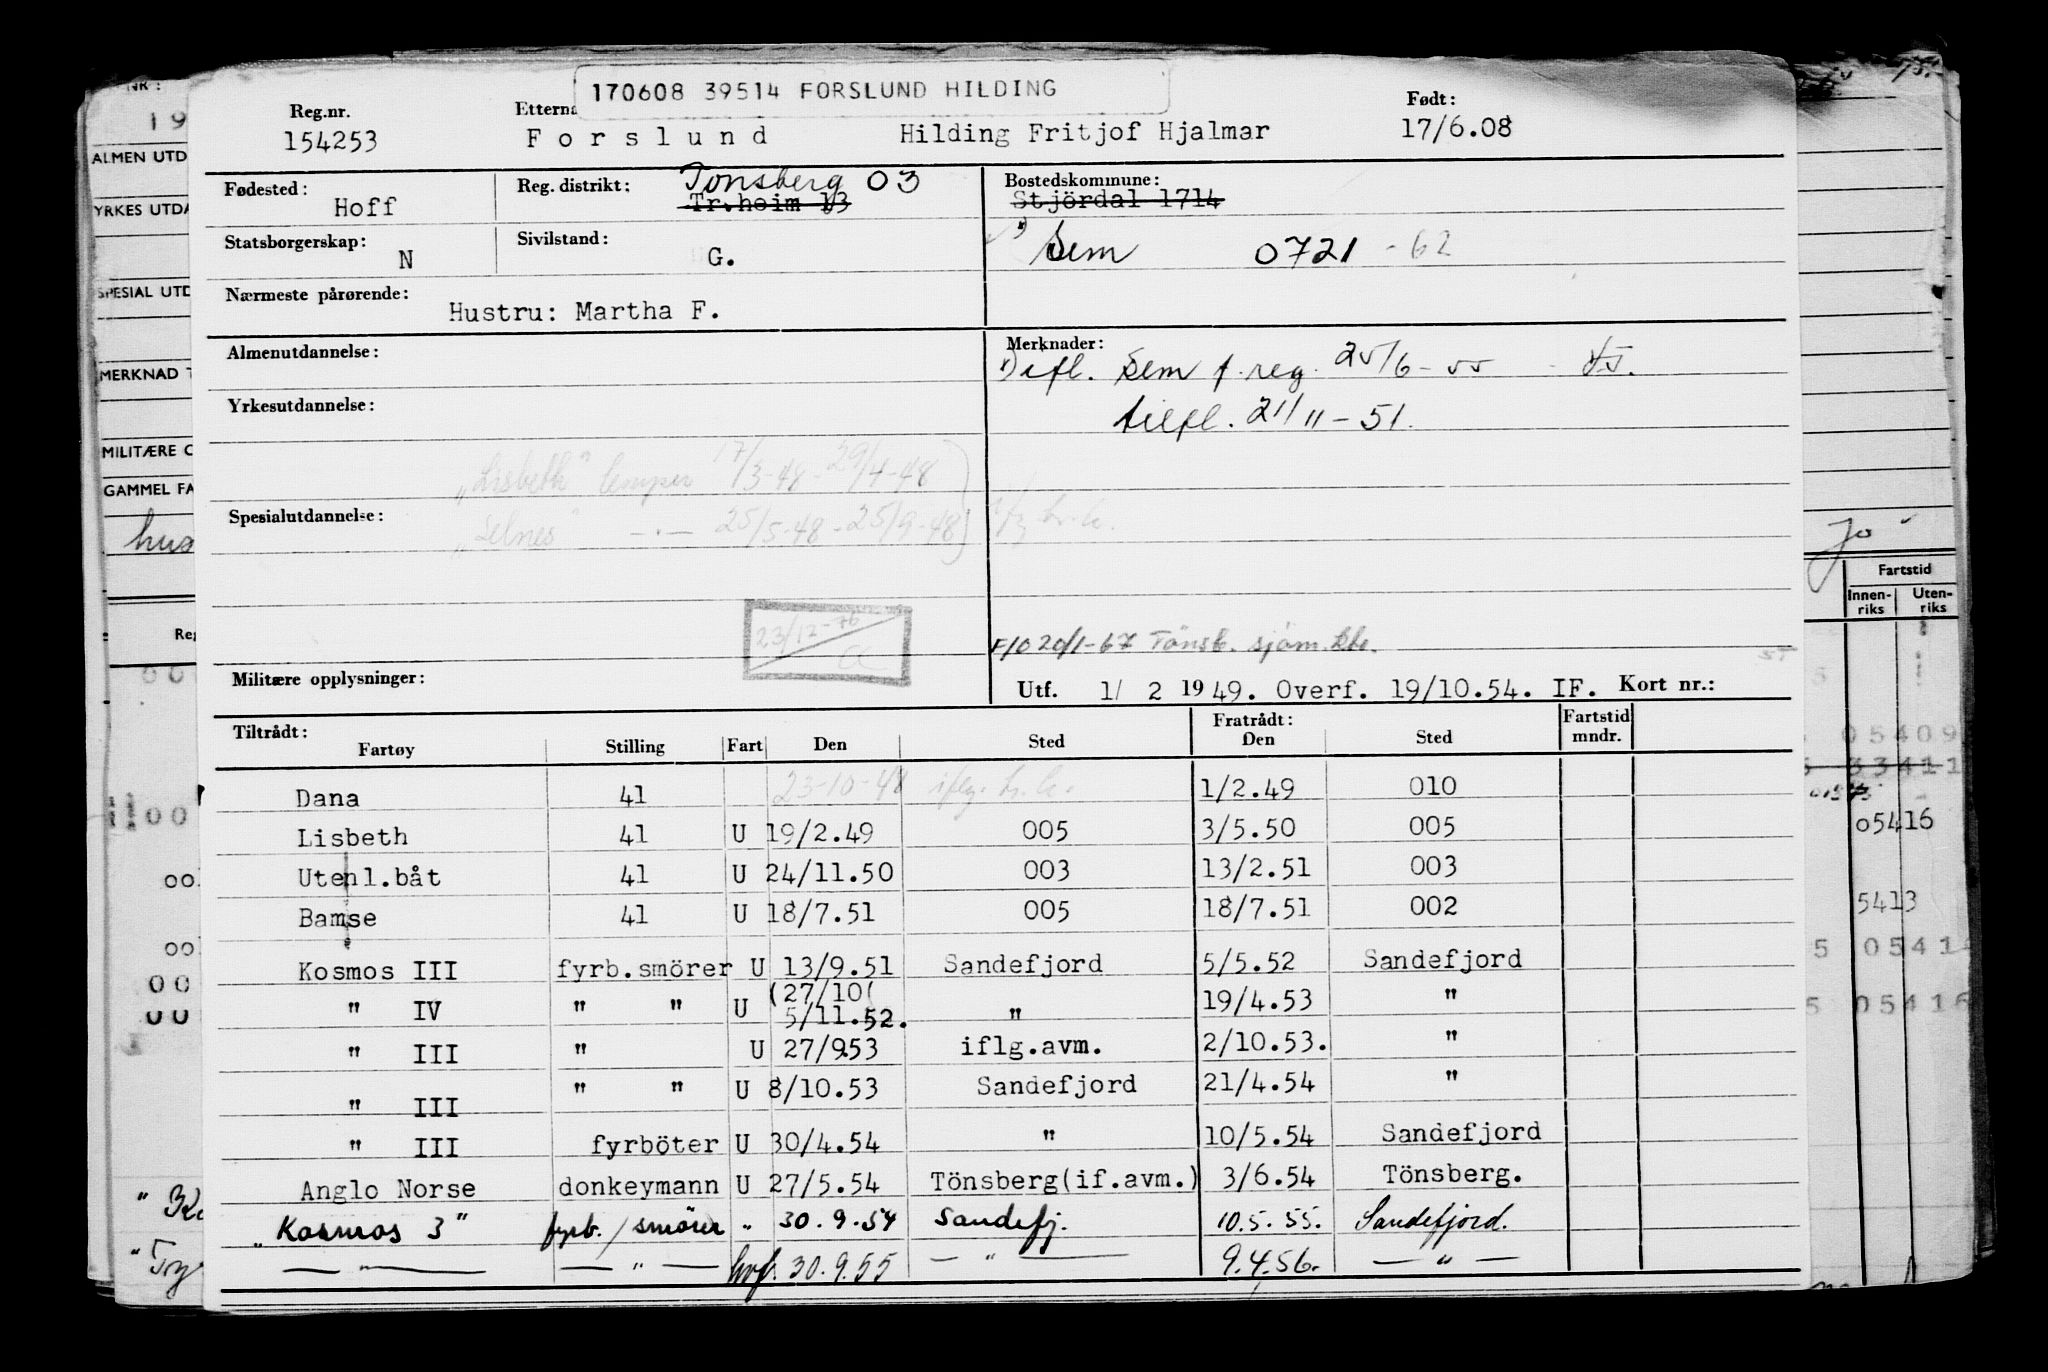 170608 39514 FORSLUND HILDING
Reg.nr. Etterna Født:
154253 Forslund Hilding Fritjof Hjalmar 17/6.08
Fødested: Hoff Reg. distrikt: Tønsberg 03 Bostedskommune:
Tr.heim 13 Stjördal 1714
Statsborgerskap: N Sivilstand: G. Sem 0721 - 62
Nærmeste pårørende: Hustru: Martha F.
Almenutdannelse: Merknader:
Sem f. reg. 25/6-55
Yrkesutdannelse: tilfl. 21/11-51.
„Lisbeth" lemper 17/3-48 - 29/4-48
Spesialutdannelse: „Selnes" —·— 25/5-48 - 25/9-48
23/12-76
F/O 20/1-67 Tönsb. sjöm.
Militære opplysninger: Utf. 1/ 2 1949. Overf. 19/10.54. IF. Kort nr.:
Tiltrådt: Fratrådt: Fartstid
Fartøy Stilling Fart Den Sted Den Sted mndr.
Dana 41 23-10-48 1/2.49 010
Lisbeth 41 U 19/2.49 005 3/5.50 005
Utenl.båt 41 U 24/11.50 003 13/2.51 003
Bamse 41 U 18/7.51 005 18/7.51 002
Kosmos III fyrb.smörer U 13/9.51 Sandefjord 5/5.52 Sandefjord
" IV " " U (27/10( 5/11.52. " 19/4.53 "
" III " U 27/953 iflg.avm. 2/10.53. "
" III " " U 8/10.53 Sandefjord 21/4.54 "
" III fyrböter U 30/4.54 " 10/5.54 Sandefjord
Anglo Norse donkeymann U 27/5.54 Tönsberg(if.avm.) 3/6.54 Tönsberg.
„Kosmos 3" fyrb./smörer " 30.9.54 Sandefj. 10.5.55. Sandefjord.
— " — — " — hvf. 30.9.55 — " — 9.4.56. — " —
NR:
19
ALMEN UTD
YRKES UTDA
SPESIAL UTD
MERKNAD
MILITÆRE
GAMMEL FA
Fartstid
Innen-riks Uten-riks
05409
33411
05416
5413
5 0541
5 05416